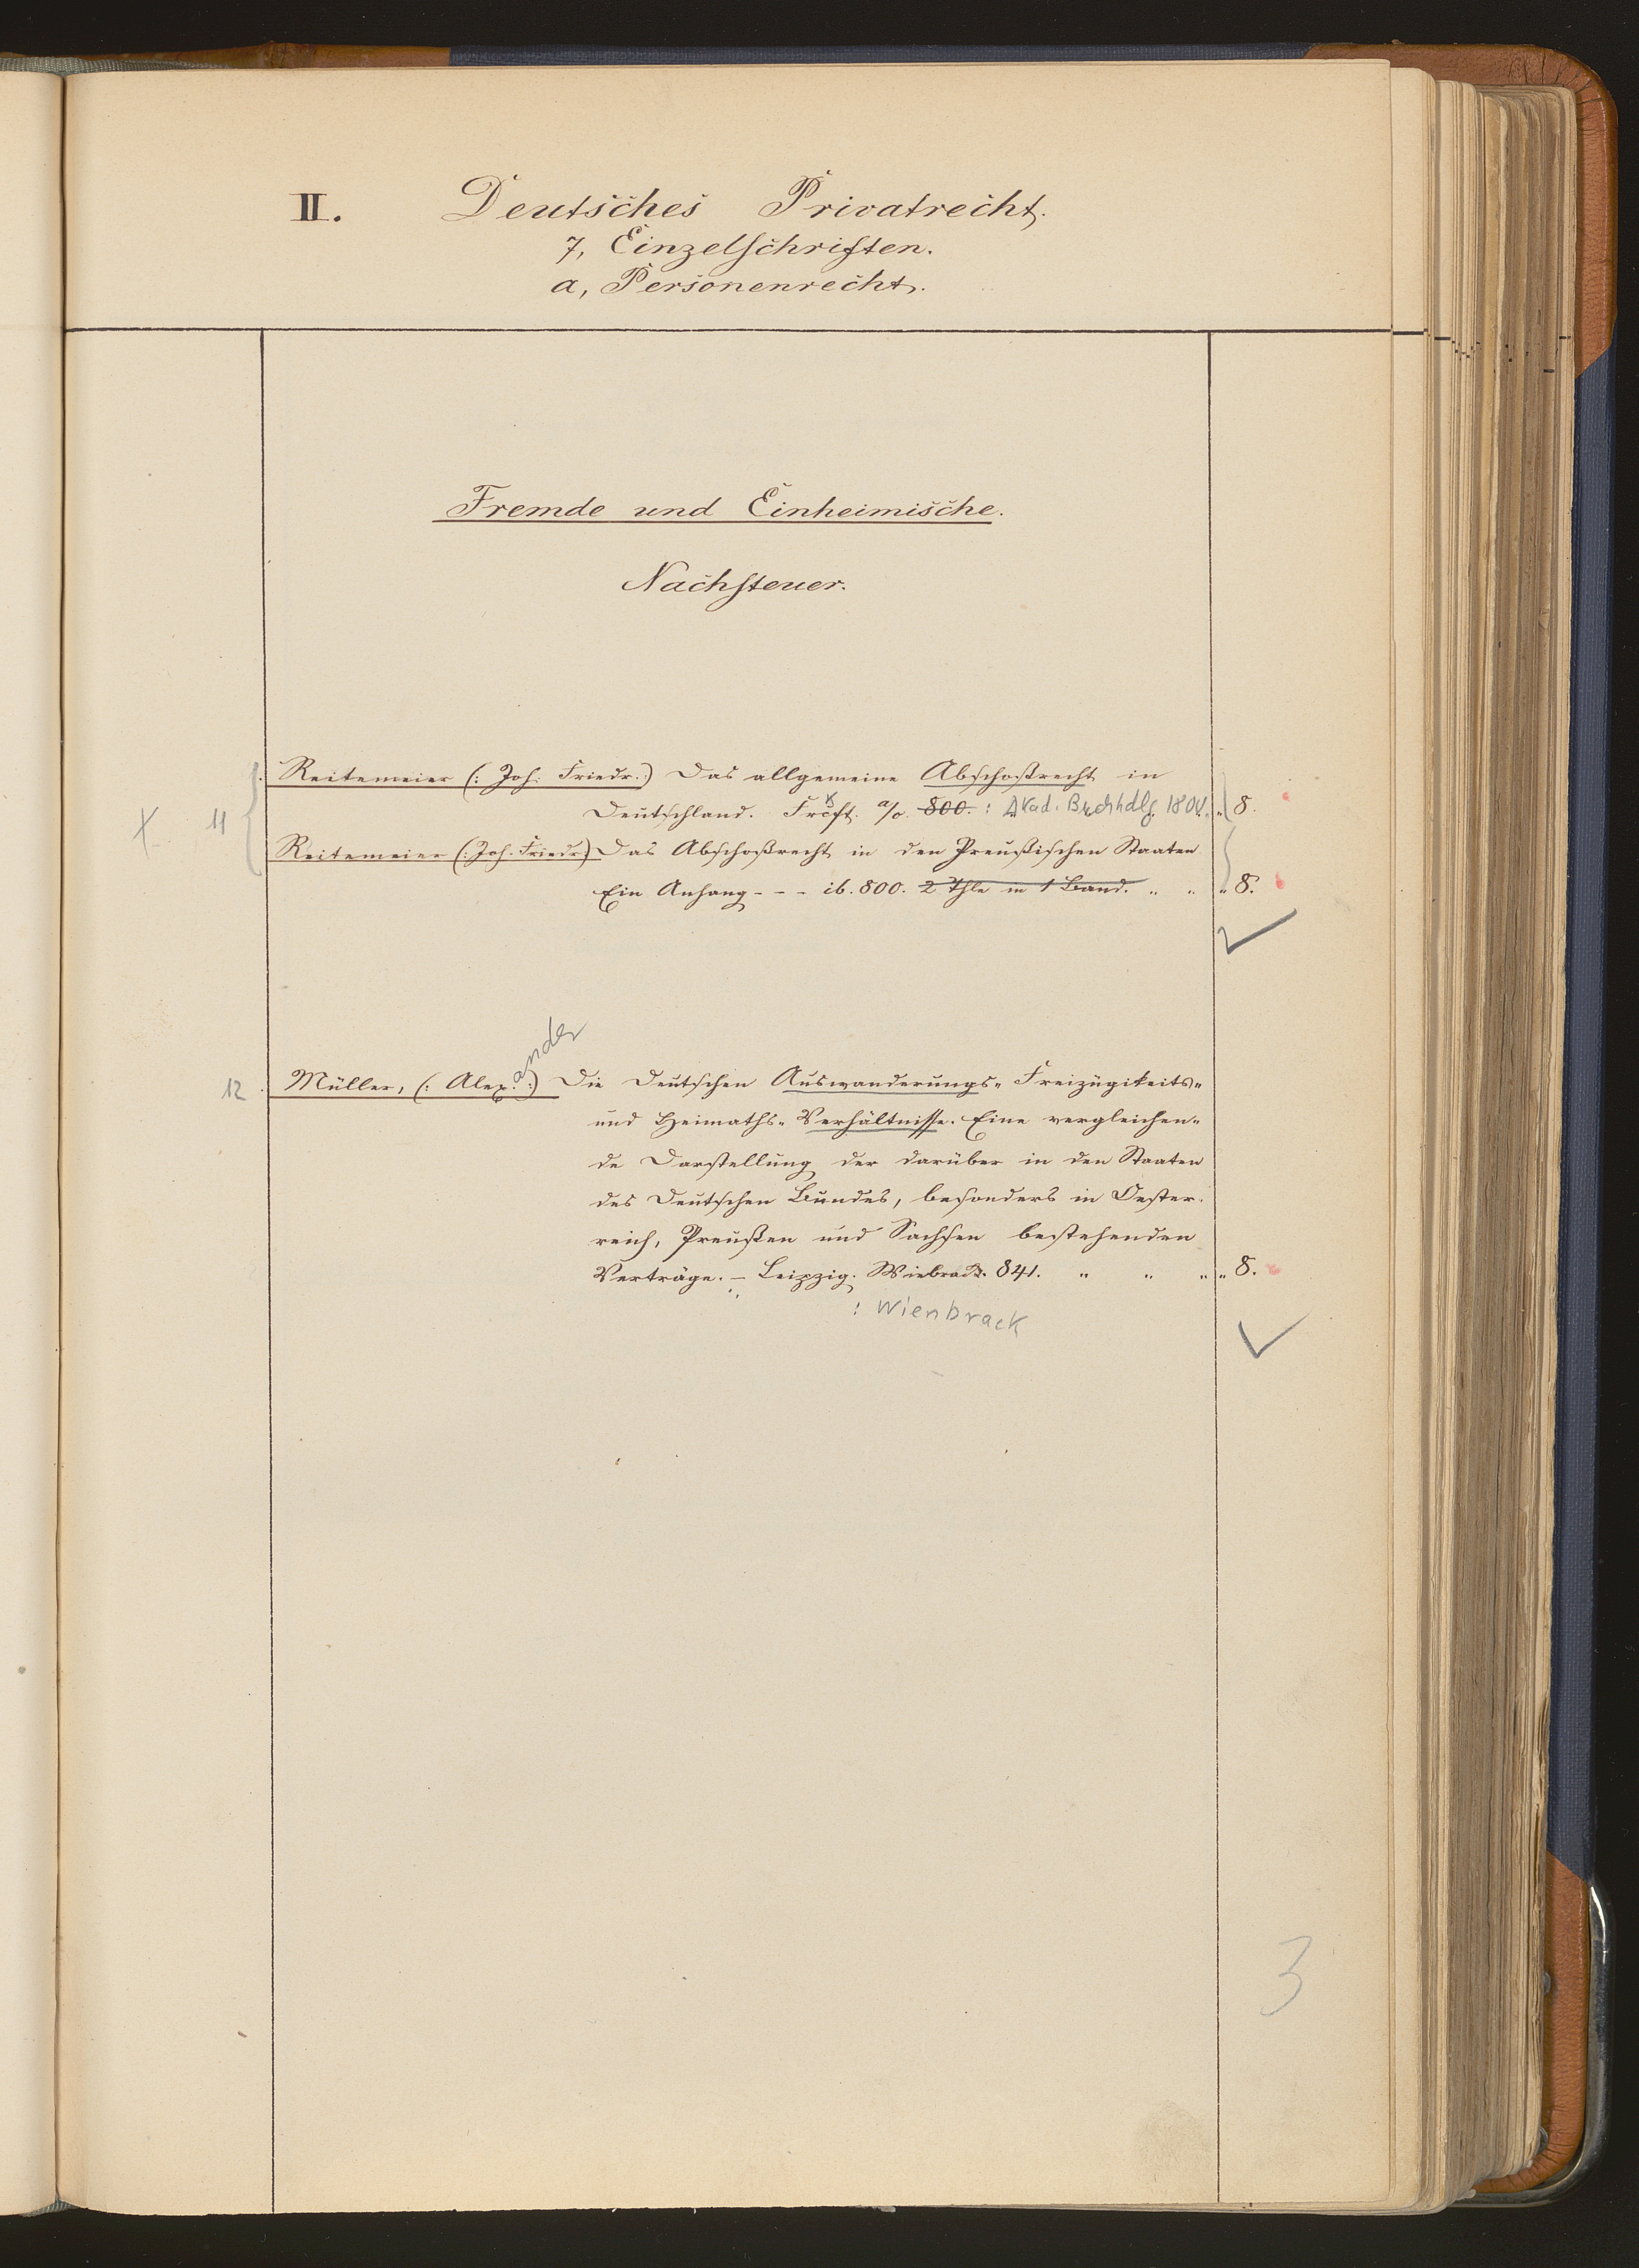 II. Deutsches Privatrecht.
7, Einzelschriften.
a, Personenrecht.
Fremde und Einheimische.
Nachsteuer.
Reitemeier (: Joh. Friedr. :) Das allgemeine Abschoßrecht in
X 11 Deutschland. Frkft. a/o. 800. : Akad. Buchhdlg. 1800. „ 8.
Reitemeier (: Joh. Friedr.) Das Abschoßrecht in den Preußischen Staaten
Ein Anhang - - - ib. 800. 2 Thle in 1 Band. „ „ „ 8.
ander
12 Müller, (: Alex. :) Die Deutschen Auswanderungs- Freizügikeits-
und Heimaths- Verhältnisse. Eine vergleichen-
de Darstellung der darüber in den Staaten
des Deutschen Bundes, besonders in Oester-
reich, Preußen und Sachsen bestehenden
Verträge. – Leipzig. Wiebrack. 841. „ „ „ „ 8.
: Wienbrack
3